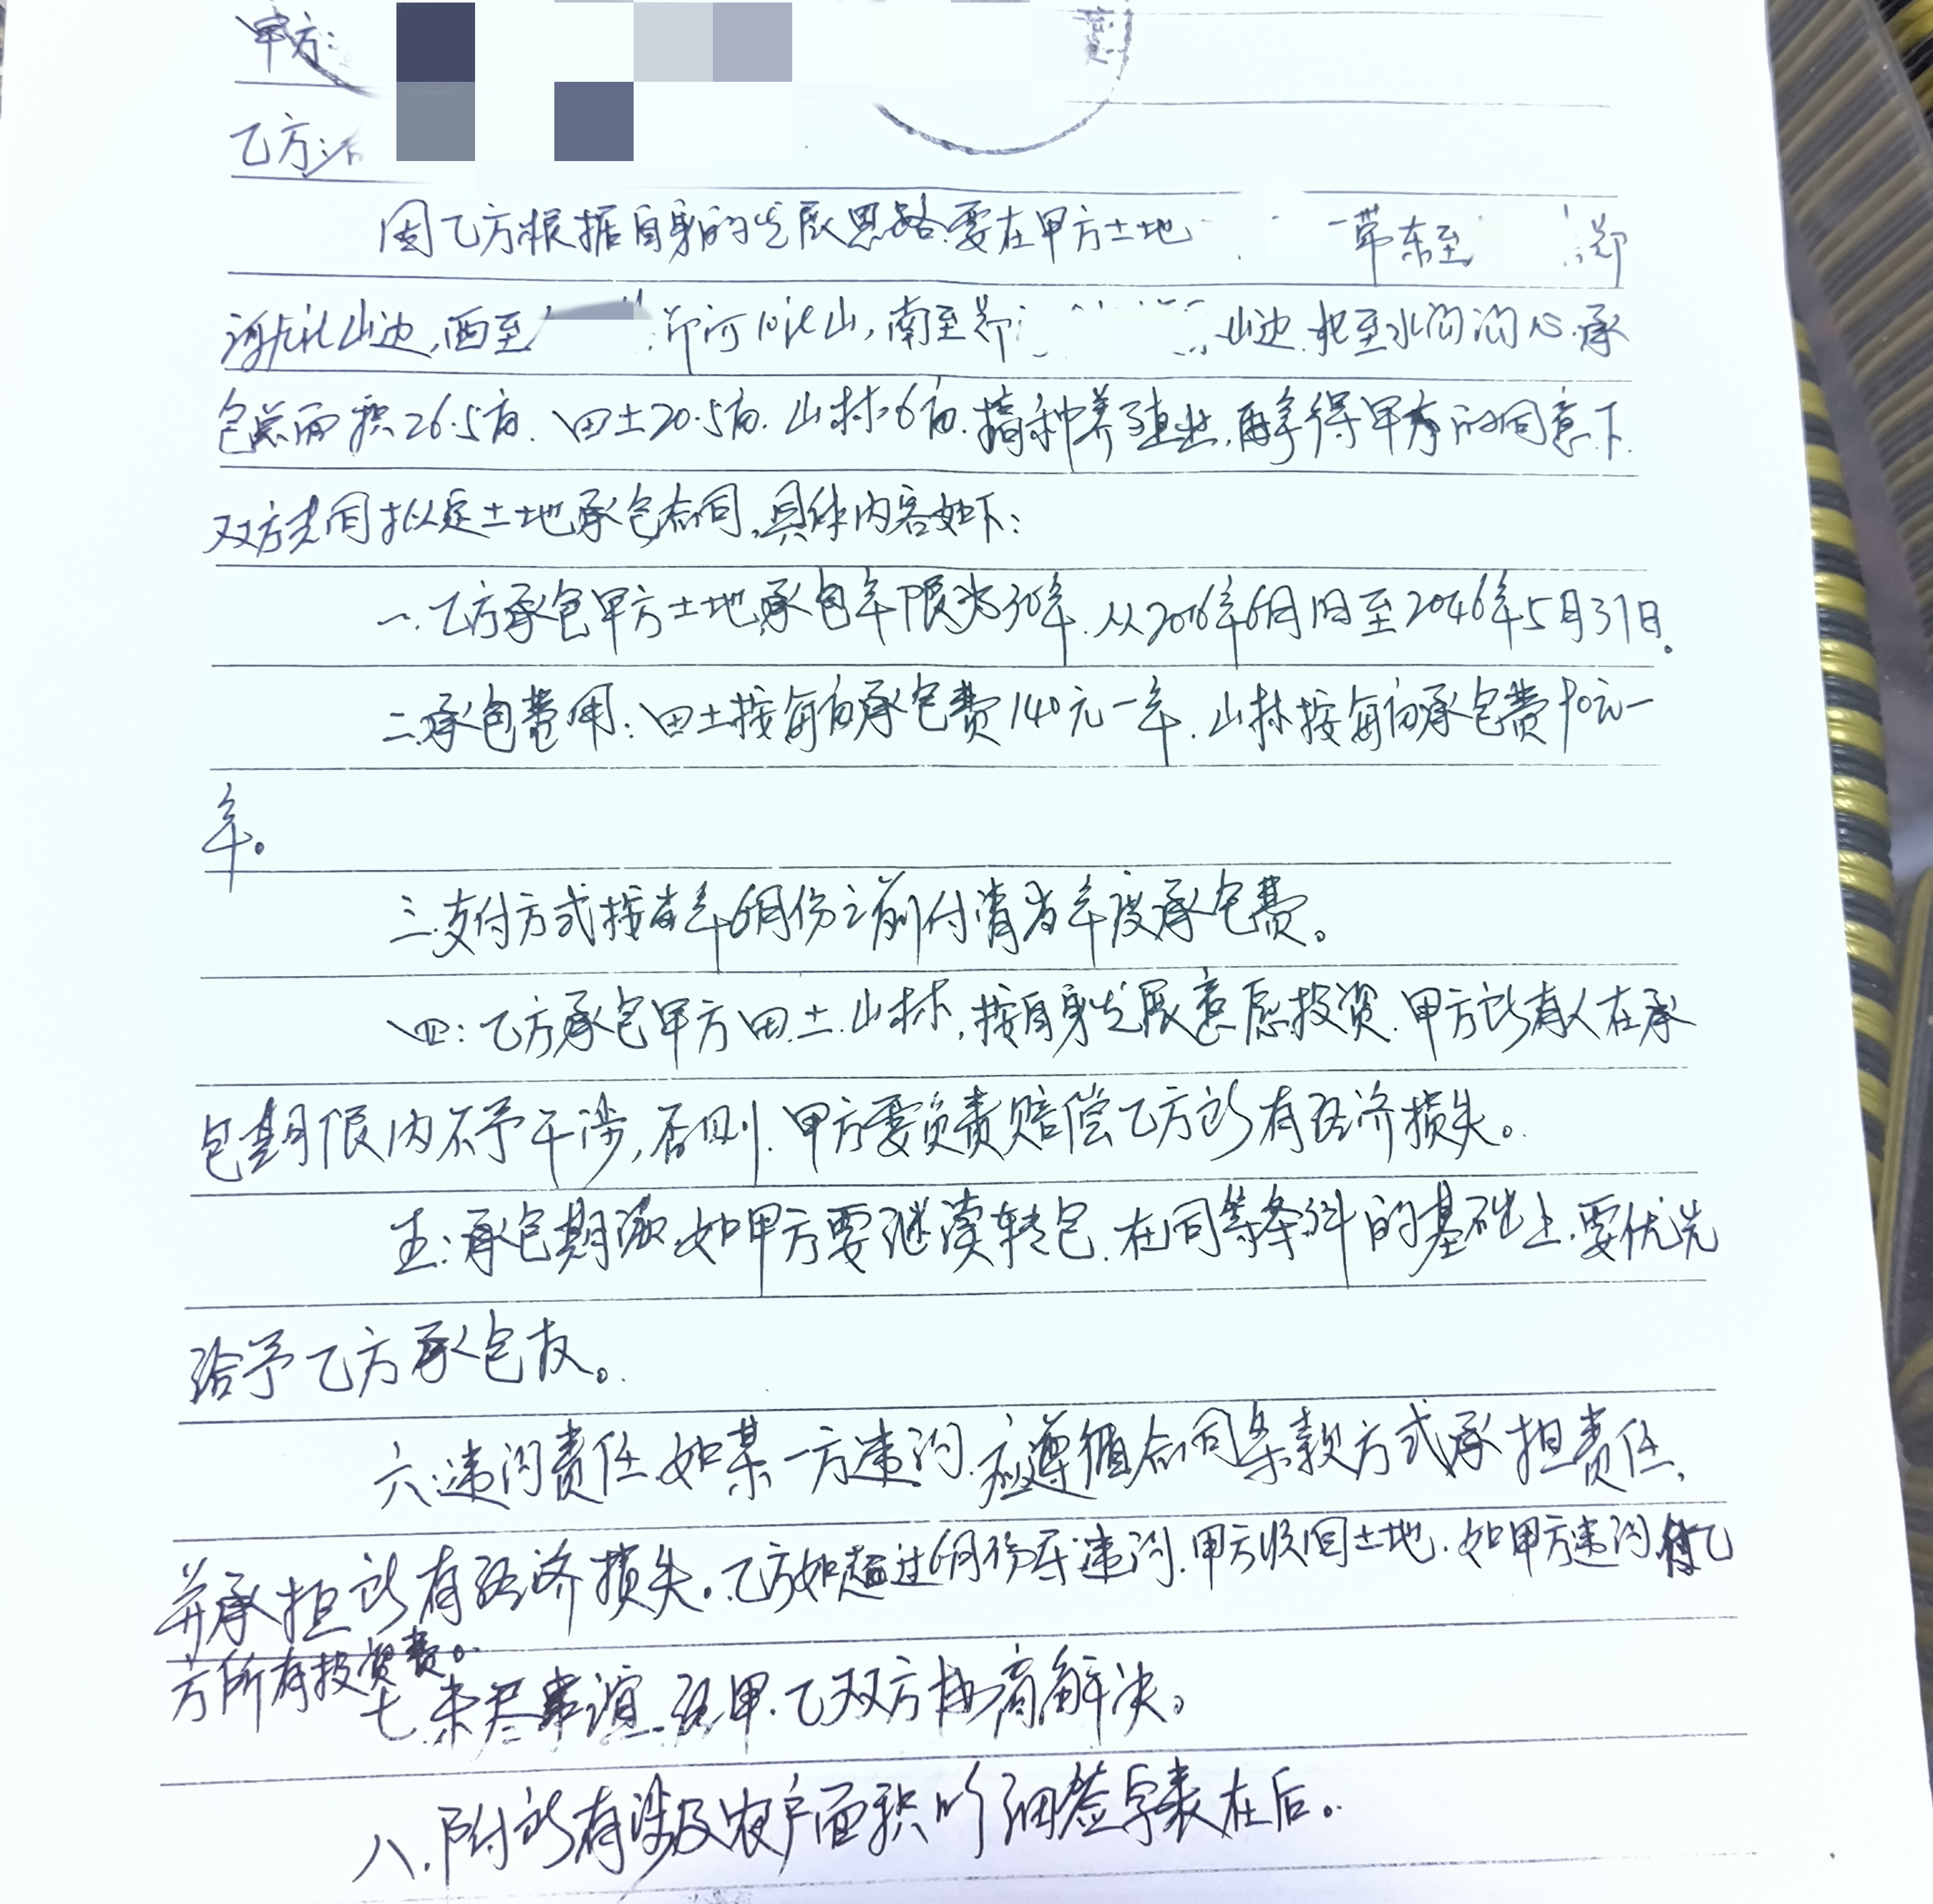 甲方:
乙方:
因乙方根据自身的发展思路.要在甲方土地 一带东至 郑
山边,西至 山,南至郑 山边.北至水沟沟心.承
包总面积26.5亩.田土20.5亩.山林6亩.搞种养殖业,再争得甲方的同意下.
双方共同拟定土地承包合同,具体内容如下:
一.乙方承包甲方土地,承包年限为30年.从2016年6月1日至2046年5月31日。
二.承包费用:田土按每亩承包费140元一年.山林按每亩承包费90元一
年。
三.支付方式按当年6月份之前付清当年度承包费。
四:乙方承包甲方田.土.山林,按自身发展意愿投资.甲方所有人在承
包期限内不予干涉,否则.甲方要负责赔偿乙方所有经济损失。
五:承包期满,如甲方要继续转包.在同等条件的基础上.要优先
给予乙方承包权。
六:违约责任.如某一方违约.应遵循合同条款方式承担责任,
并承担所有经济损失。乙方如超过6月份算违约.甲方收回土地.如甲方违约 乙
方所有投资费。
七.未尽事谊.经甲.乙双方协商解决。
八.附所有涉及农户面积明细签字表在后。